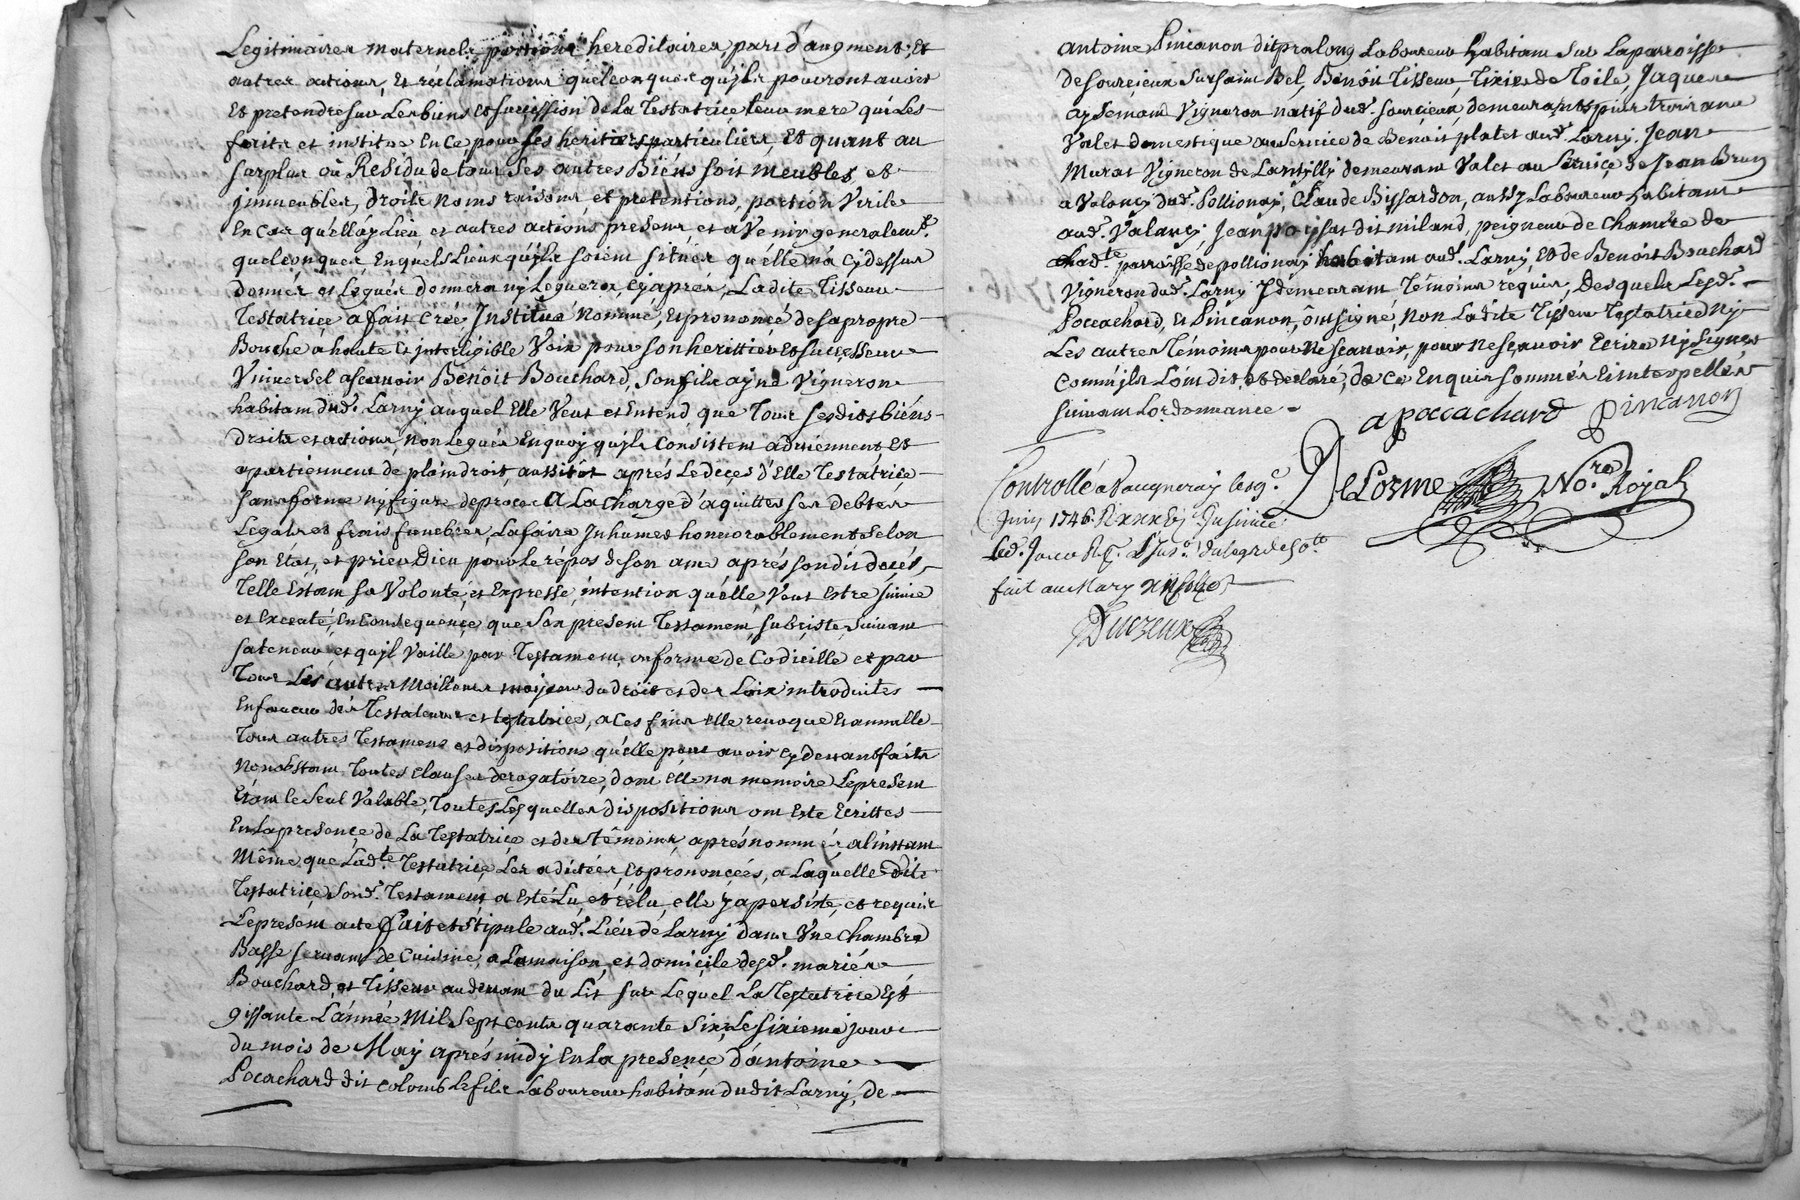 Legitimaires maternels, portions hereditaires, part d'augment, et
autres actions, et réclamations quelconques qu'jls pouvront avoir
Et pretendre sur Les biens et succession de La Testatrice, leur mere qui Les
faits et institue En ce, pour ses heritiers particuliers, Et quant au
surplus où Residu de tous Ses autres Biens soit meubles et
jmmeubles, droits noms raisons, et pretentions, portion virile
En cas qu'elle ay Lieu et autres actions presens et a Venir generalemt.
quelconques, En quels Lieux qu'jls soient situés qu'elle n'a cy dessus
donnés et Légués donnera ny Leguera, cy après, Ladite Tisseur
Testatrice a fait Créé Institué Nommé, et prononcé de sa propre
Bouche a haute et jntelligible Voix pour son herittier et successeur
Vniversel ascavoir Benoit Bouchard, son fils ayné Vigneron
habitant dud. Larny auquel Elle Veut et Entend que Tous ses dits biens
droits et actions, non Legués En quoy qu'jls Consistent adviennent et
apartiennent de plein droit, aussitôt après Le decès d'Elle Testatrice
sans forme ny figure de proces A La Charge d'aquitter ses debtes
Legats et frais funebres, La faire jnhumer honnorablement selon
son Etat, et prier Dieu pour Le répos de son ame après son dit decès
Telle Estant sa Volonté, et Expresse, intention qu'elle Veut Estre suivie
et Executé, En Consequence que son present Testament, subsiste suivant
sa teneur et qu'jl Vaille par Testament, en forme de Codicille et par
Tous Les autres Meilleurs moyens du droit et des Loix introduites
En faveur des Testateurs et testatrice, a Ces fins elle revoque et annulle
Tous autres Testamens et dispositions qu'elle peut avoir cy devant faits
Nonobstant Toutes clauses derogatoire, dont elle n'a memoire Le present
Etant le seul Valable, Toutes Lesquelles dispositions ont Este Ecrittes
En La presence de La Testatrice et des témoins, après nommés, a l'instant
Même que Ladte. Testatrice Les a dictées, et prononcées, a Laquelle dite
Testatrice, sond. Testament a Esté Lu, et rélu, elle y a persisté, et requis
Le present acte Fait et Stipulé aud. Lieu de Larny dans Vne Chambre
Basse servant de Cuisine, a La maison, et domicile desd. mariés
Bouchard et Tisseur au devant du Lit sur Lequel La Testatrice Est
gissante L'année Mil Sept cents quarante six, Le sixieme jour
du mois de May après midy En La presence d'antoine
Pocachard dit colomb Le fils Laboureur habitant dudit Larny, de
antoine Pincanon dit pralong Laboureur habitant sur La parroisse
de sourcieux sur saint Bel, Benoit Tisseur, Tixier de Toile, Jaques
aydemond Vigneron natif dud. sourcieux, demeurants
Valet domestique au service de Benoit platet aud. Larny, Jean
Murat Vigneron de Lantilly demeurant Valet au service de Jean Brun
a Valancy dud. Pollionay, Claude Bissardon, aussy Laboureur habitant
aud. Valancy, Jean poyssat dit miland, peigneur de Chamvre de
Ladte. parroisse de pollionay habitant aud. Larny, Et de Benoit Bouchard
Vigneron dud. Larny y demeurant Témoins réquis, Desquels Lesd.
Pocachard, Et Pincanon, ont signé, Non La dite Tisseur Testatrice Ny
Les autres Témoins pour ne sçavoir Ecrire ny signer
Comm'jls L'ont dit, et declaré, de Ce Enquis sommés Et interpellés
suivant L'ordonnance
apocachard pincanon
DeLorme No.re Royal
Controllé a Vaugneray le
Juin 1746
fait au
Ducreux